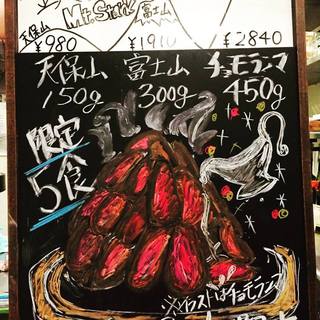 Mt. Steak
天保山 富士山
¥980 ¥1910 ¥2840
天保山 富士山 チョモランマ
150g 300g 450g
限定
5食
※イラストはチョモランマ